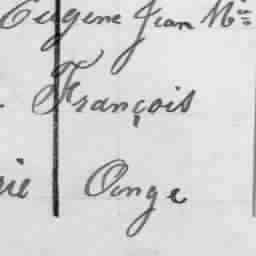 Eugène Jean M
François
rie Ange